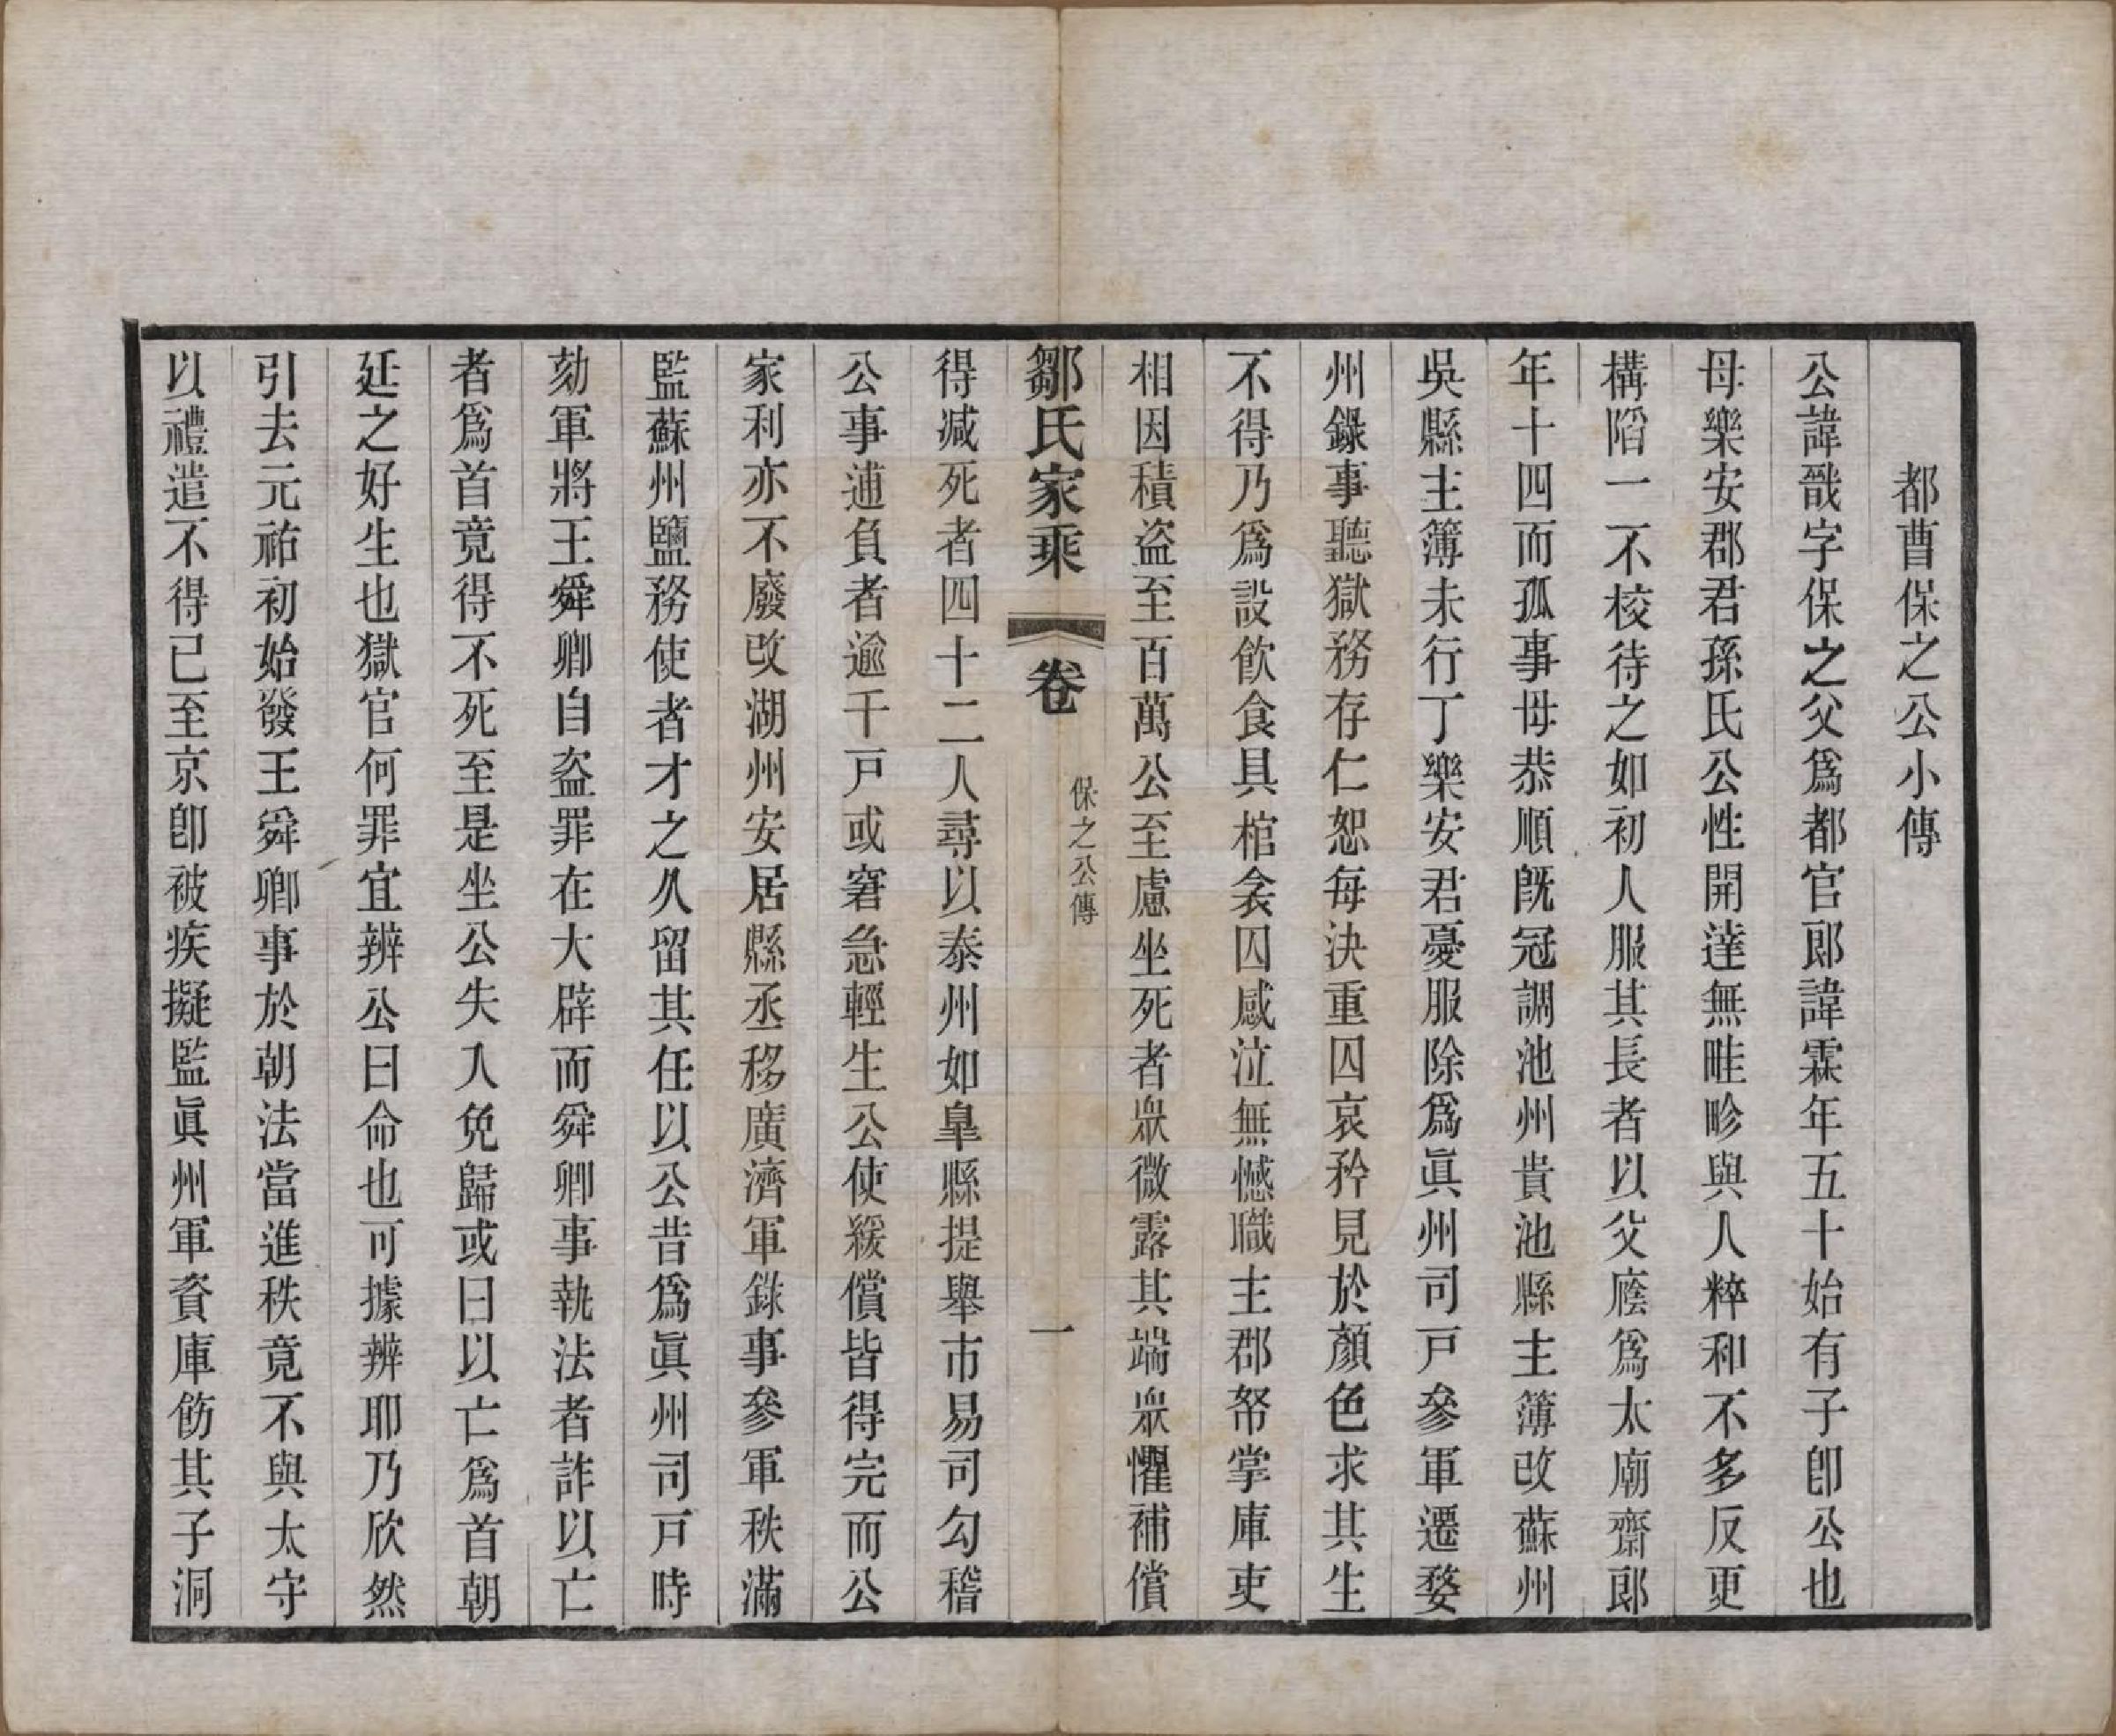 都曹保之公小傳
公諱戩字保之父爲都官郎諱霖年五十始有子卽公也
母樂安郡君孫氏公性開達無畦畛與人粹和不多反更
構陷一不校待之如初人服其長者以父廕爲太廟齋郎
年十四而孤事母恭順旣冠調池州貴池縣主簿改蘇州
吳縣主簿未行丁樂安君憂服除爲眞州司戸參軍遷婺
州錄事聽獄務存仁恕每決重囚哀矜見於顏色求其生
不得乃爲設飮食具棺衾囚感泣無憾職主郡帑掌庫吏
相因積盜至百萬公至慮坐死者衆微露其端衆懼補償
鄒氏家乘 卷 保之公傳 一
得減死者四十二人尋以泰州如皐縣提舉市易司勾稽
公事逋負者逾千戸或窘急輕生公使緩償皆得完而公
家利亦不廢改湖州安居縣丞移廣濟軍錄事參軍秩滿
監蘇州鹽務使者才之久留其任以公昔爲眞州司戸時
劾軍將王舜卿自盜罪在大辟而舜卿事執法者詐以亡
者爲首竟得不死至是坐公失入免歸或曰以亡爲首朝
延之好生也獄官何罪宜辨公曰命也可據辨耶乃欣然
引去元祐初始發王舜卿事於朝法當進秩竟不與太守
以禮遣不得已至京卽被疾擬監眞州軍資庫飭其子洞